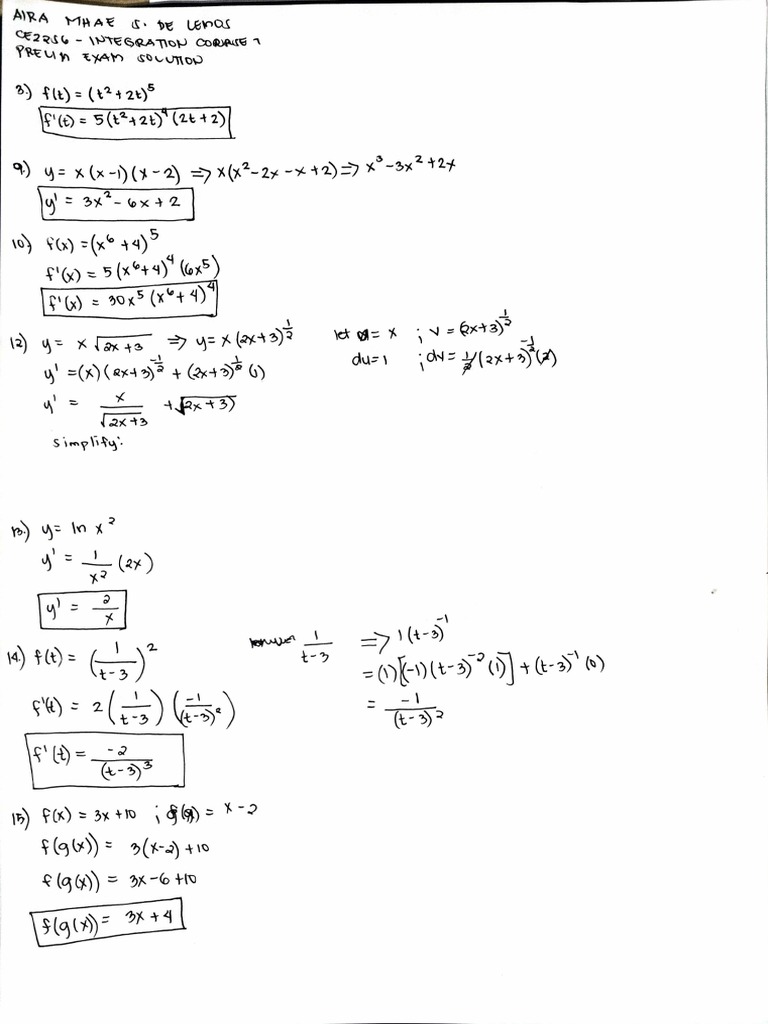 AIRA MHAE S. DE LEMOS
CE2256 - INTEGRATION COURSE 1
PRELIM EXAM SOLUTION
3.) f(t) = (t² + 2t)⁵
f'(t) = 5(t² + 2t)⁴ (2t + 2)
9.) y = x(x-1)(x-2) ⇒ x(x² - 2x - x + 2) ⇒ x³ - 3x² + 2x
y' = 3x² - 6x + 2
10.) f(x) = (x⁶ + 4)⁵
f'(x) = 5(x⁶ + 4)⁴ (6x⁵)
f'(x) = 30x⁵ (x⁶ + 4)⁴
12.) y = x √(2x + 3) ⇒ y = x(2x + 3)^(1/2) let u = x ; v = (2x + 3)^(1/2)
y' = (x)(2x + 3)^(-1/2) + (2x + 3)^(1/2) (1) du = 1 ; dv = 1/2 (2x + 3)^(-1/2) (2)
y' = x/√(2x + 3) + √(2x + 3)
simplify:
13.) y = ln x²
y' = 1/x² (2x)
y' = 2/x
14.) f(t) = (1/(t-3))² 1/(t-3) ⇒ 1(t-3)⁻¹
= (1)[(-1)(t-3)⁻² (1)] + (t-3)⁻¹ (0)
f'(t) = 2(1/(t-3)) (-1/(t-3)²) = -1/(t-3)²
f'(t) = -2/(t-3)³
15.) f(x) = 3x + 10 ; g(x) = x - 2
f(g(x)) = 3(x-2) + 10
f(g(x)) = 3x - 6 + 10
f(g(x)) = 3x + 4